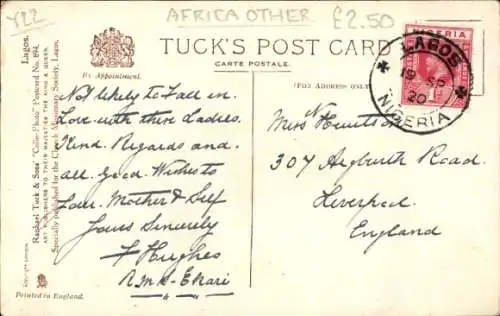 Y22
AFRICA OTHER £2.50
TUCK'S POST CARD
CARTE POSTALE.
By Appointment.
(FOR ADDRESS ONLY.)
NIGERIA
LAGOS
20
NIGERIA
Lagos.
Raphael Tuck & Sons' "Collo-Photo" Postcard No. 894.
ART PUBLISHERS TO THEIR MAJESTIES THE KING & QUEEN.
Specially published for the Church Missionary Society, Lagos.
Not likely to fall in
Love with these Ladies.
Kind Regards and
all Good Wishes to
Your Mother & Self
Yours Sincerely
F Hughes
R.M.S. Ekari
Miss Hewitson
307 Aigburth Road.
Liverpool
England
Printed in England.